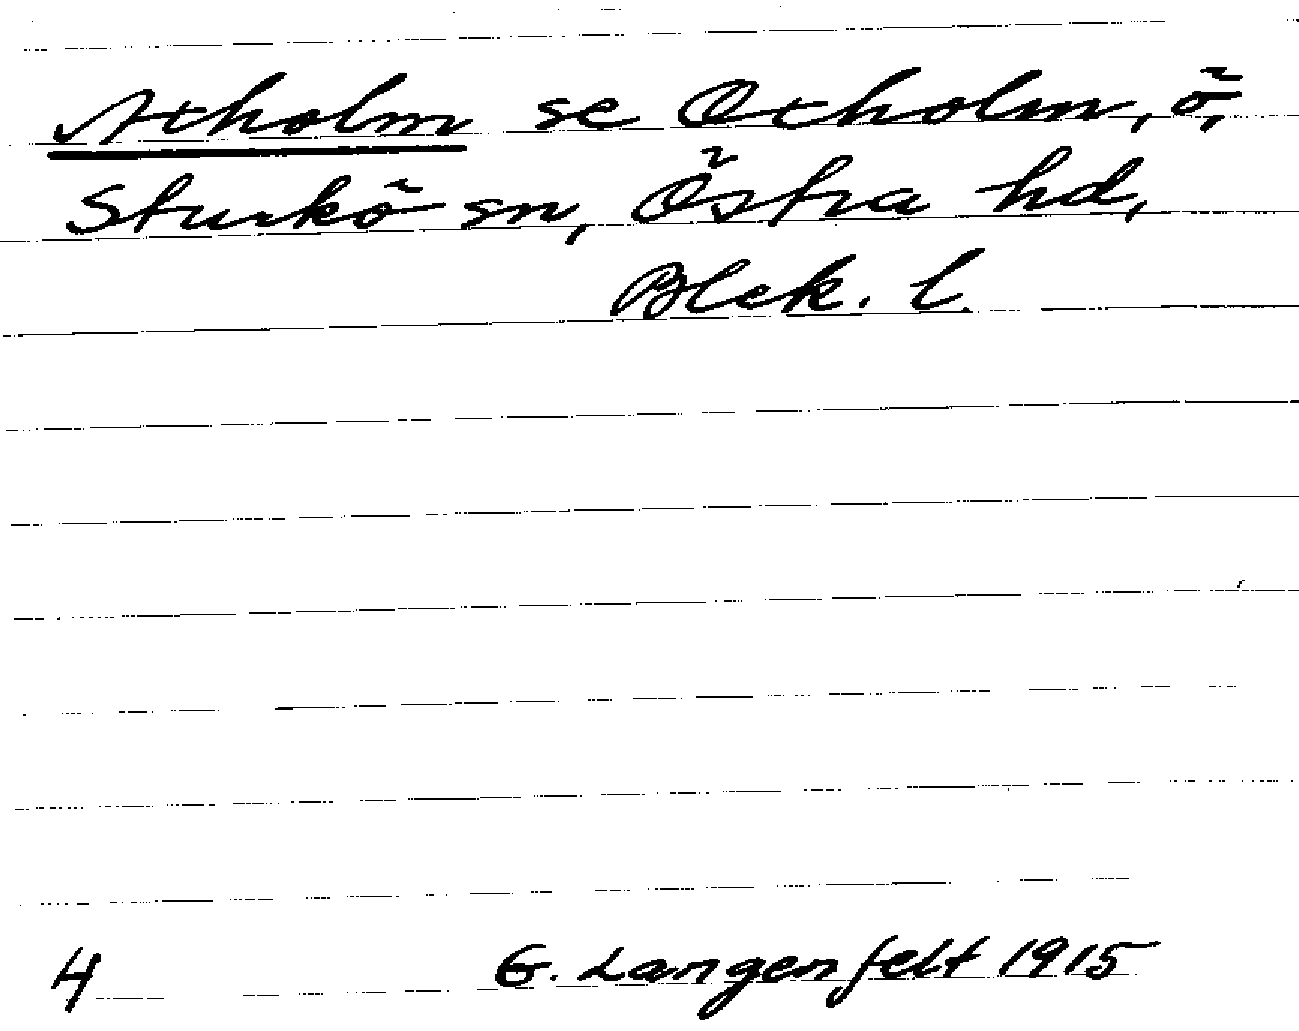 Axholm se Oxholm, ö,
Sturkö sn, Östra hd,
Blek. l.
4 G. Langenfelt 1915